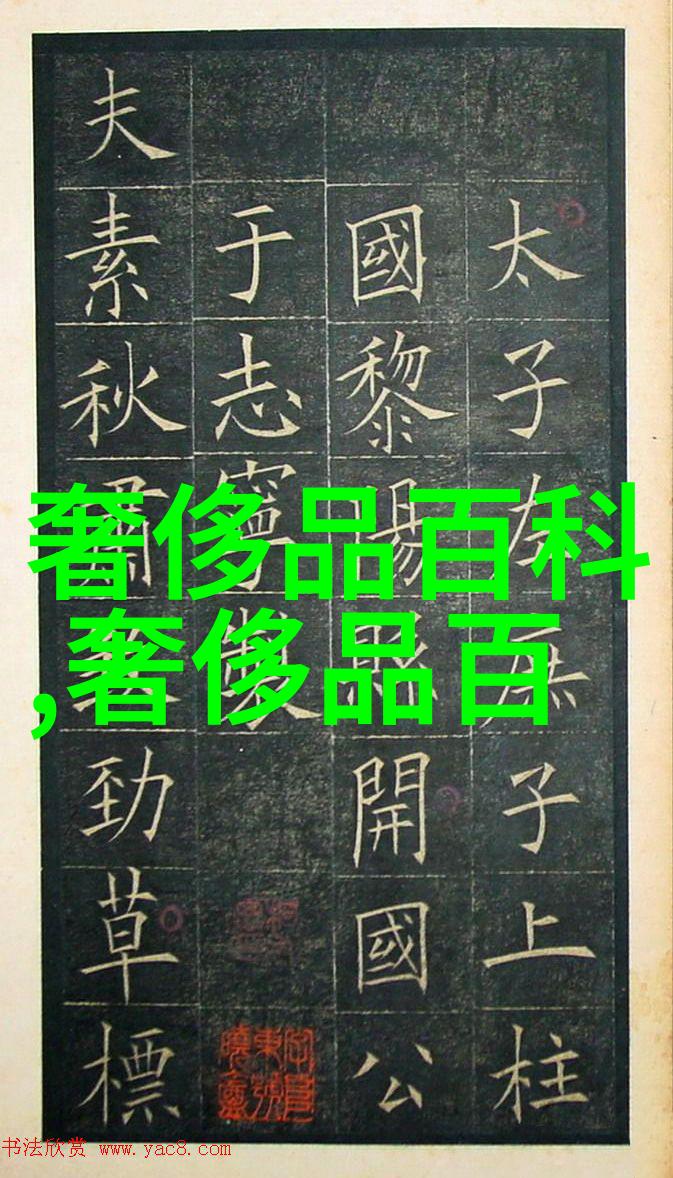 太子左庶子上柱
國黎陽縣開國公
于志寧製
夫素秋肅勁草標
奢侈品百科
,奢侈品百
书法欣赏 www.yac8.com